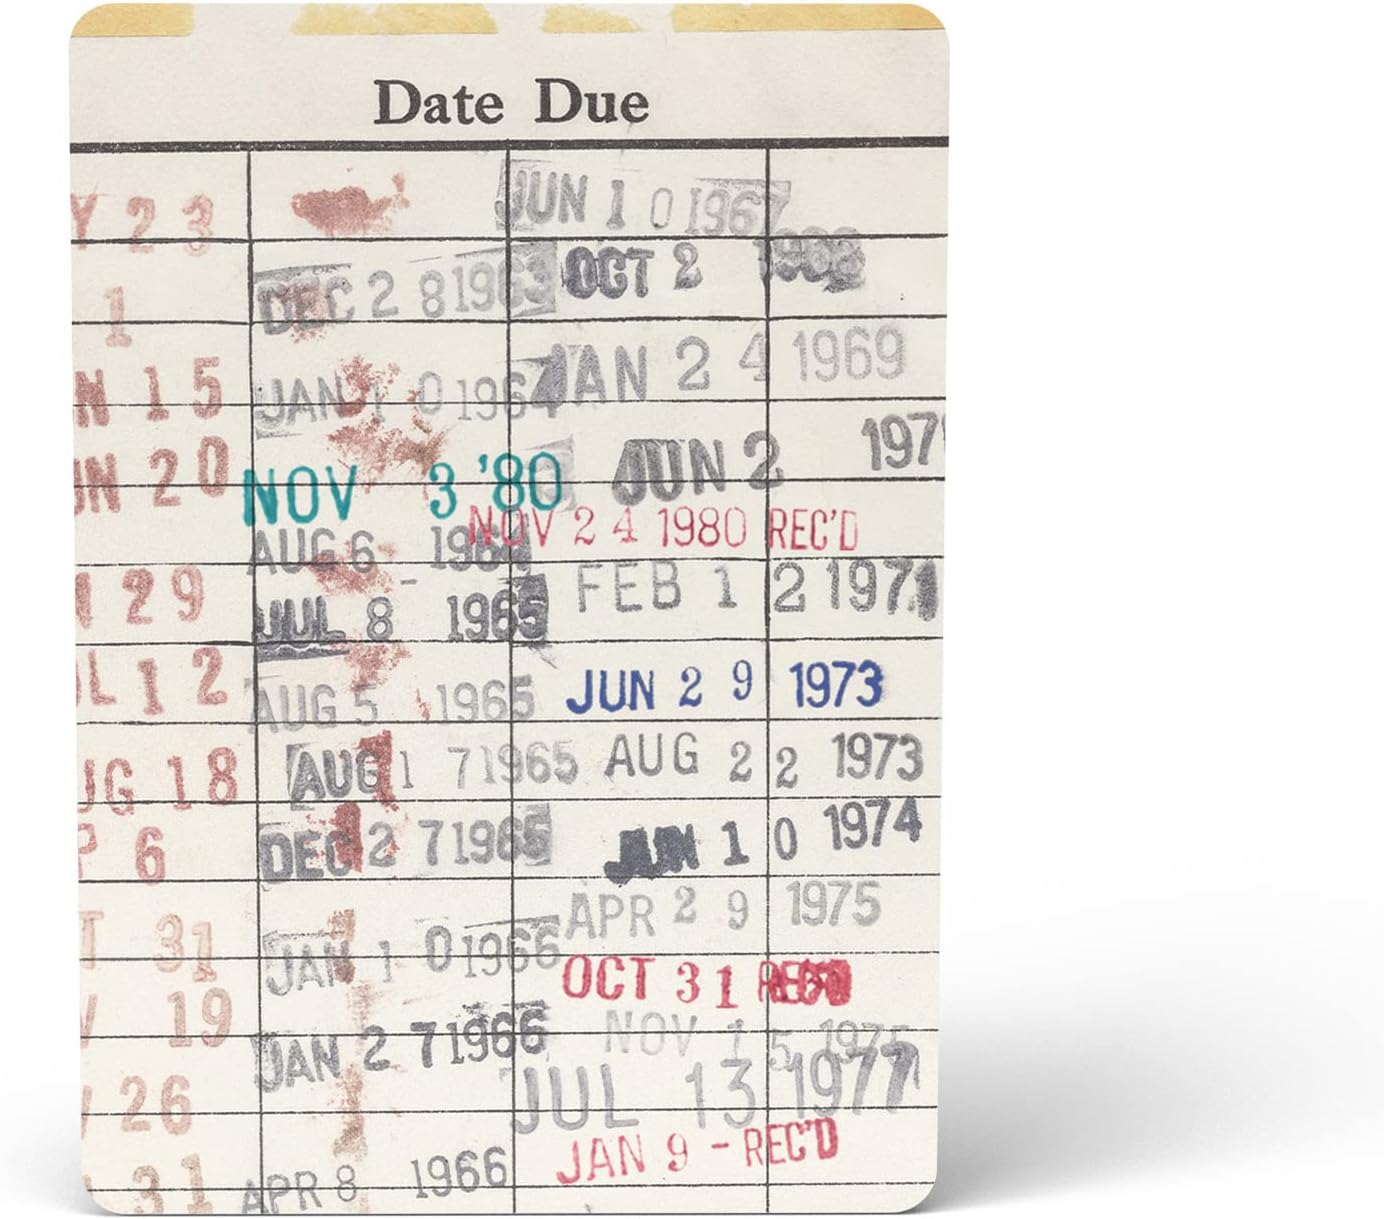 Date Due
Y 23
1
N 15
UN 20
29
L 12
UG 18
P 6
T 31
V 19
26
31
DEC 28 1963
JAN 10 1964
NOV 3 '80
AUG 6 - 1964
JUL 8 1965
AUG 5 1965
AUG 17 1965
DEC 27 1965
JAN 10 1966
JAN 27 1966
APR 8 1966
JUN 10 1967
OCT 2 1968
JAN 24 1969
JUN 2 197
NOV 24 1980 REC'D
FEB 12 1971
JUN 29 1973
AUG 22 1973
JUN 10 1974
APR 29 1975
OCT 31 REC'D
NOV 15 1975
JUL 13 1977
JAN 9 - REC'D